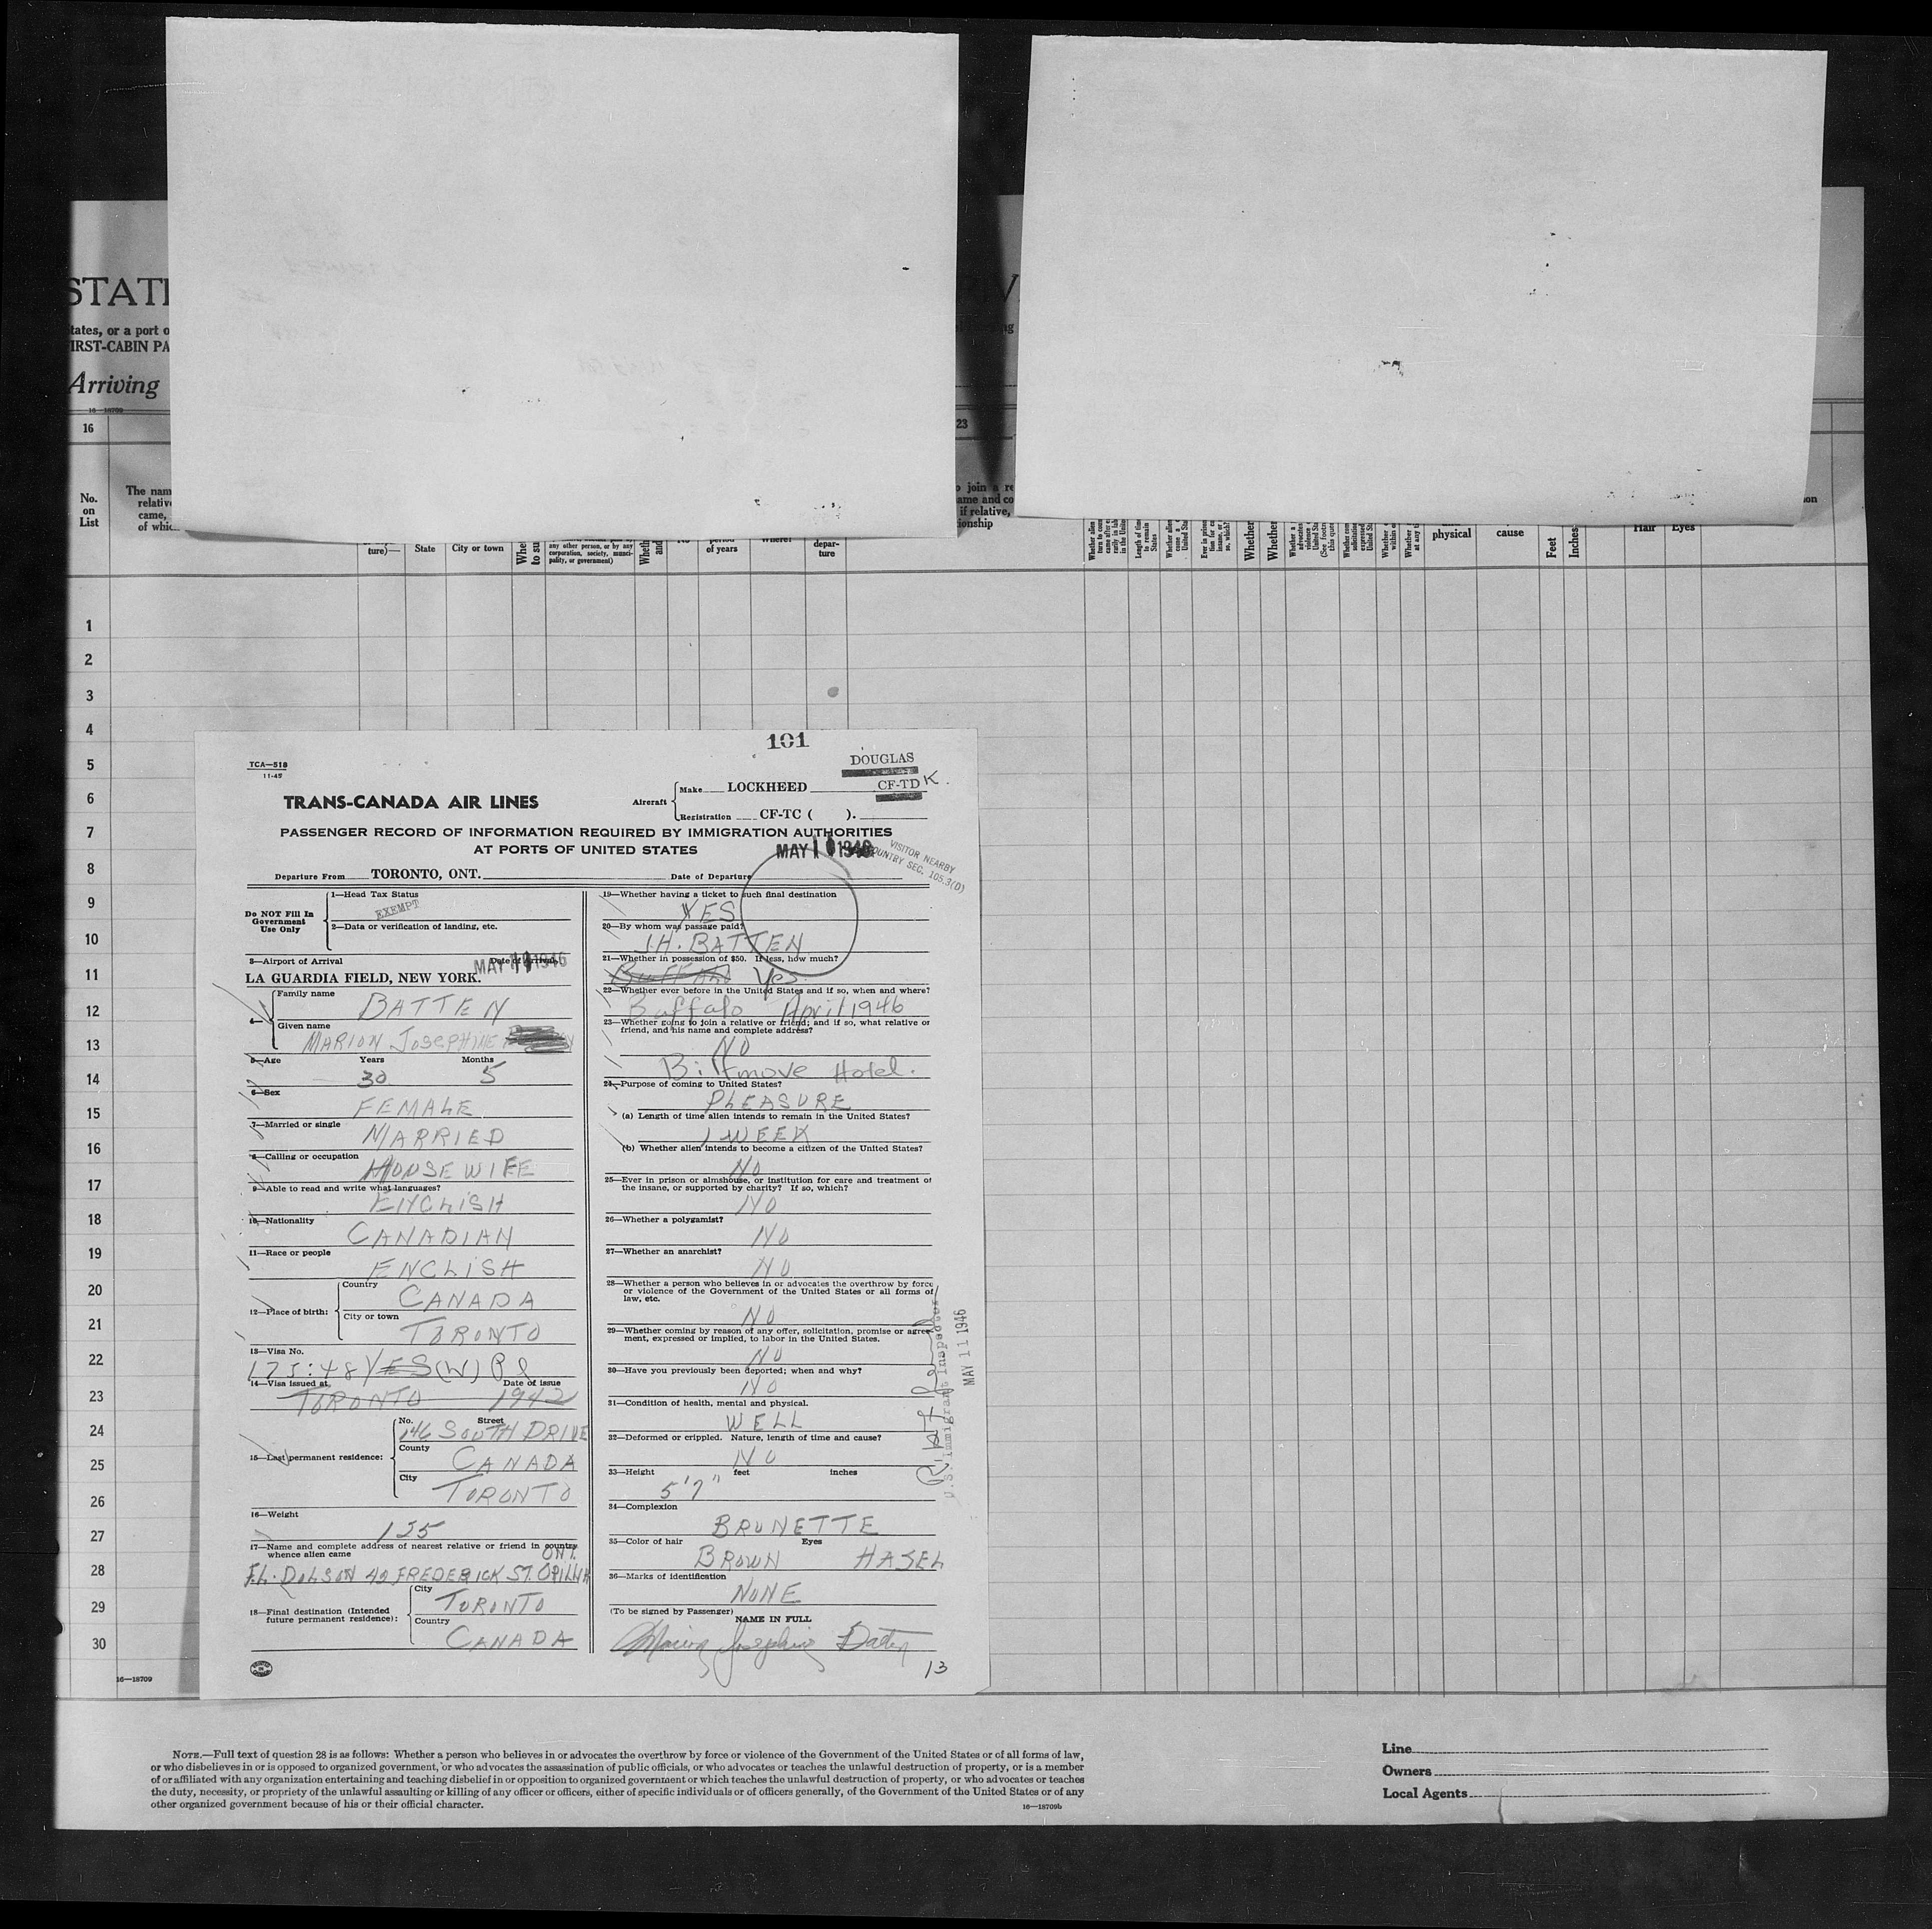 STATE
tates, or a port o
IRST-CABIN PA
Arriving
16—18709
16
23
No.
on
List
The nam
relativ
came,
of whic
ture)—
State
City or town
any other person, or by any
corporation, society, munici-
pality, or government)
period
of years
where?
depar-
ture
o join a re
ame and co
if relative,
ionship
physical
cause
Feet
Inches
Hair
Eyes
on
1
2
3
4
5
6
7
8
9
10
11
12
13
14
15
16
17
18
19
20
21
22
23
24
25
26
27
28
29
30
16—18709
101
TCA—518
11-45
DOUGLAS
TRANS-CANADA AIR LINES
Aircraft
Make LOCKHEED CF-TD K.
Registration CF-TC ( ).
PASSENGER RECORD OF INFORMATION REQUIRED BY IMMIGRATION AUTHORITIES
AT PORTS OF UNITED STATES
VISITOR NEARBY
COUNTRY SEC. 105.3(D)
Departure From TORONTO, ONT. Date of Departure
Do NOT Fill In
Government
Use Only
1—Head Tax Status
EXEMPT
2—Data or verification of landing, etc.
3—Airport of Arrival Date of Arrival
LA GUARDIA FIELD, NEW YORK. MAY 11 1946
4— Family name
BATTEN
Given name
MARION JOSEPHINE
5—Age Years Months
30 5
6—Sex
FEMALE
7—Married or single
MARRIED
8—Calling or occupation
HOUSEWIFE
9—Able to read and write what languages?
ENGLISH
10—Nationality
CANADIAN
11—Race or people
ENGLISH
12—Place of birth:
Country
CANADA
City or town
TORONTO
13—Visa No.
175:48 YES (W)
14—Visa issued at Date of issue
TORONTO 1942
15—Last permanent residence:
No. Street
146 SOUTH DRIVE
County
CANADA
City
TORONTO
16—Weight
135
17—Name and complete address of nearest relative or friend in country
whence alien came
ONT.
F.L. DOLSON 42 FREDERICK ST. ORILLIA
18—Final destination (Intended
future permanent residence):
City
TORONTO
Country
CANADA
19—Whether having a ticket to such final destination
YES
20—By whom was passage paid?
J.H. BATTEN
21—Whether in possession of $50. If less, how much?
BUFFALO Yes
22—Whether ever before in the United States and if so, when and where?
Buffalo April 1946
23—Whether going to join a relative or friend; and if so, what relative or
friend, and his name and complete address?
NO
Biltmore Hotel.
24—Purpose of coming to United States?
PLEASURE
(a) Length of time alien intends to remain in the United States?
1 WEEK
(b) Whether alien intends to become a citizen of the United States?
NO
25—Ever in prison or almshouse, or institution for care and treatment of
the insane, or supported by charity? If so, which?
NO
26—Whether a polygamist?
NO
27—Whether an anarchist?
NO
28—Whether a person who believes in or advocates the overthrow by force
or violence of the Government of the United States or all forms of
law, etc.
NO
29—Whether coming by reason of any offer, solicitation, promise or agree-
ment, expressed or implied, to labor in the United States.
NO
30—Have you previously been deported; when and why?
NO
31—Condition of health, mental and physical.
WELL
32—Deformed or crippled. Nature, length of time and cause?
NO
33—Height feet inches
5'7"
34—Complexion
BRUNETTE
35—Color of hair Eyes
BROWN HASEL
36—Marks of identification
NONE
(To be signed by Passenger)
NAME IN FULL
Marion Josephine Batten
13
U.S. Immigrant Inspector
MAY 11 1946
NOTE.—Full text of question 28 is as follows: Whether a person who believes in or advocates the overthrow by force or violence of the Government of the United States or of all forms of law,
or who disbelieves in or is opposed to organized government, or who advocates the assassination of public officials, or who advocates or teaches the unlawful destruction of property, or is a member
of or affiliated with any organization entertaining and teaching disbelief in or opposition to organized government or which teaches the unlawful destruction of property, or who advocates or teaches
the duty, necessity, or propriety of the unlawful assaulting or killing of any officer or officers, either of specific individuals or of officers generally, of the Government of the United States or of any
other organized government because of his or their official character.
16—18709b
Line
Owners
Local Agents